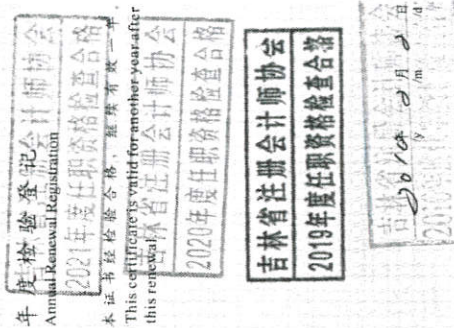 年度检验登记
Annual Renewal Registration
本证书经检验合格，继续有效一年。
This certificate is valid for another year after
this renewal.
2021年度任职资格检查合格
吉林省注册会计师协会
2020年度任职资格检查合格
吉林省注册会计师协会
2019年度任职资格检查合格
吉林省
月 日
/y /m /d